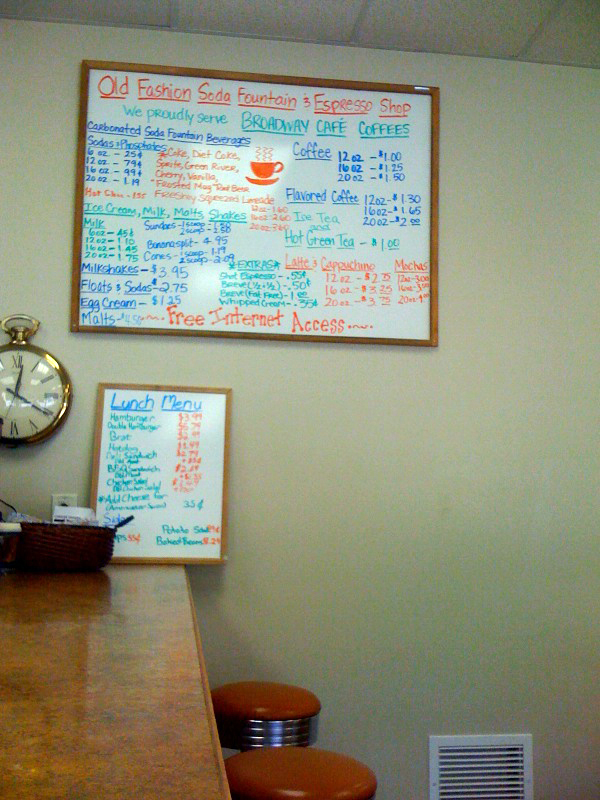 Old Fashion Soda Fountain & Espresso Shop
We proudly serve BROADWAY CAFÉ COFFEES
Carbonated Soda Fountain Beverages
Sodas & Phosphates
6 oz - 25¢
12 oz - 79¢
16 oz - 99¢
20 oz - 1.19
Coke, Diet Coke,
Sprite, Green River,
Cherry, Vanilla,
Frosted Mug Root Beer
Freshly Squeezed Limeade
12oz-1.60
16oz-2.60
20oz-3.60
Ice Cream, Milk, Malts, Shakes
Milk
6 oz - 45¢
12 oz - 1.10
16 oz - 1.45
20 oz - 1.75
Sundaes - 1 scoop
2 scoop
Banana split - 4.95
Cones - 1 scoop - 1.19
2 scoop - 2.09
Milkshakes - $3.95
Floats & Sodas - 2.75
Egg Cream - $1.25
Malts -
*EXTRAS*
Shot Espresso - .55¢
Breve (½ & ½) - .50¢
Breve (Fat Free) -
Whipped Cream - .35¢
Coffee
12 oz - $1.00
16 oz - $1.25
20 oz - $1.50
Flavored Coffee 12oz - $1.30
16oz - $1.65
20oz - $2.00
Ice Tea
and
Hot Green Tea - $1.00
Latte & Cappuchino
12 oz - $2.75
16 oz - $3.25
20 oz - $3.75
Mochas
12oz-3.00
Free Internet Access
Lunch Menu
Hamburger $3.99
Double Hamburger
Brat
Hotdog
Deli Sandwich
Sandwich
*Add Cheese for 35¢
Potato Salad
Baked Beans $1.29